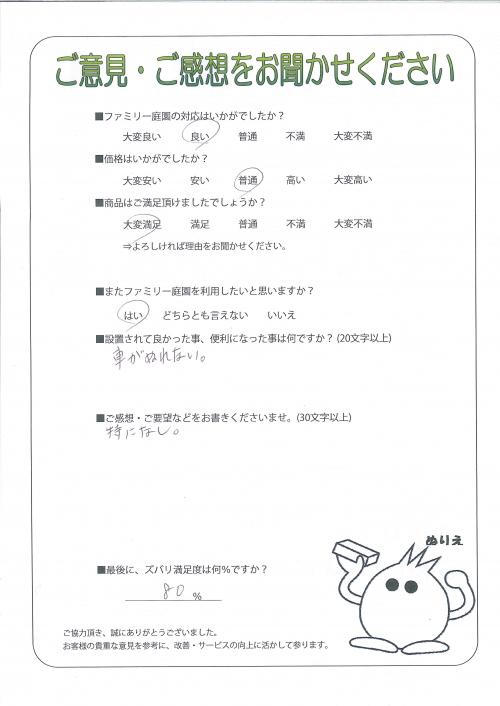 ご意見・ご感想をお聞かせください
■ファミリー庭園の対応はいかがでしたか？
大変良い 良い 普通 不満 大変不満
■価格はいかがでしたか？
大変安い 安い 普通 高い 大変高い
■商品はご満足頂けましたでしょうか？
大変満足 満足 普通 不満 大変不満
⇒よろしければ理由をお聞かせください。
■またファミリー庭園を利用したいと思いますか？
はい どちらとも言えない いいえ
■設置されて良かった事、便利になった事は何ですか？(20文字以上)
車がぬれない。
■ご感想・ご要望などをお書きくださいませ。(30文字以上)
特になし。
ぬりえ
■最後に、ズバリ満足度は何％ですか？
80 %
ご協力頂き、誠にありがとうございました。
お客様の貴重な意見を参考に、改善・サービスの向上に活かして参ります。